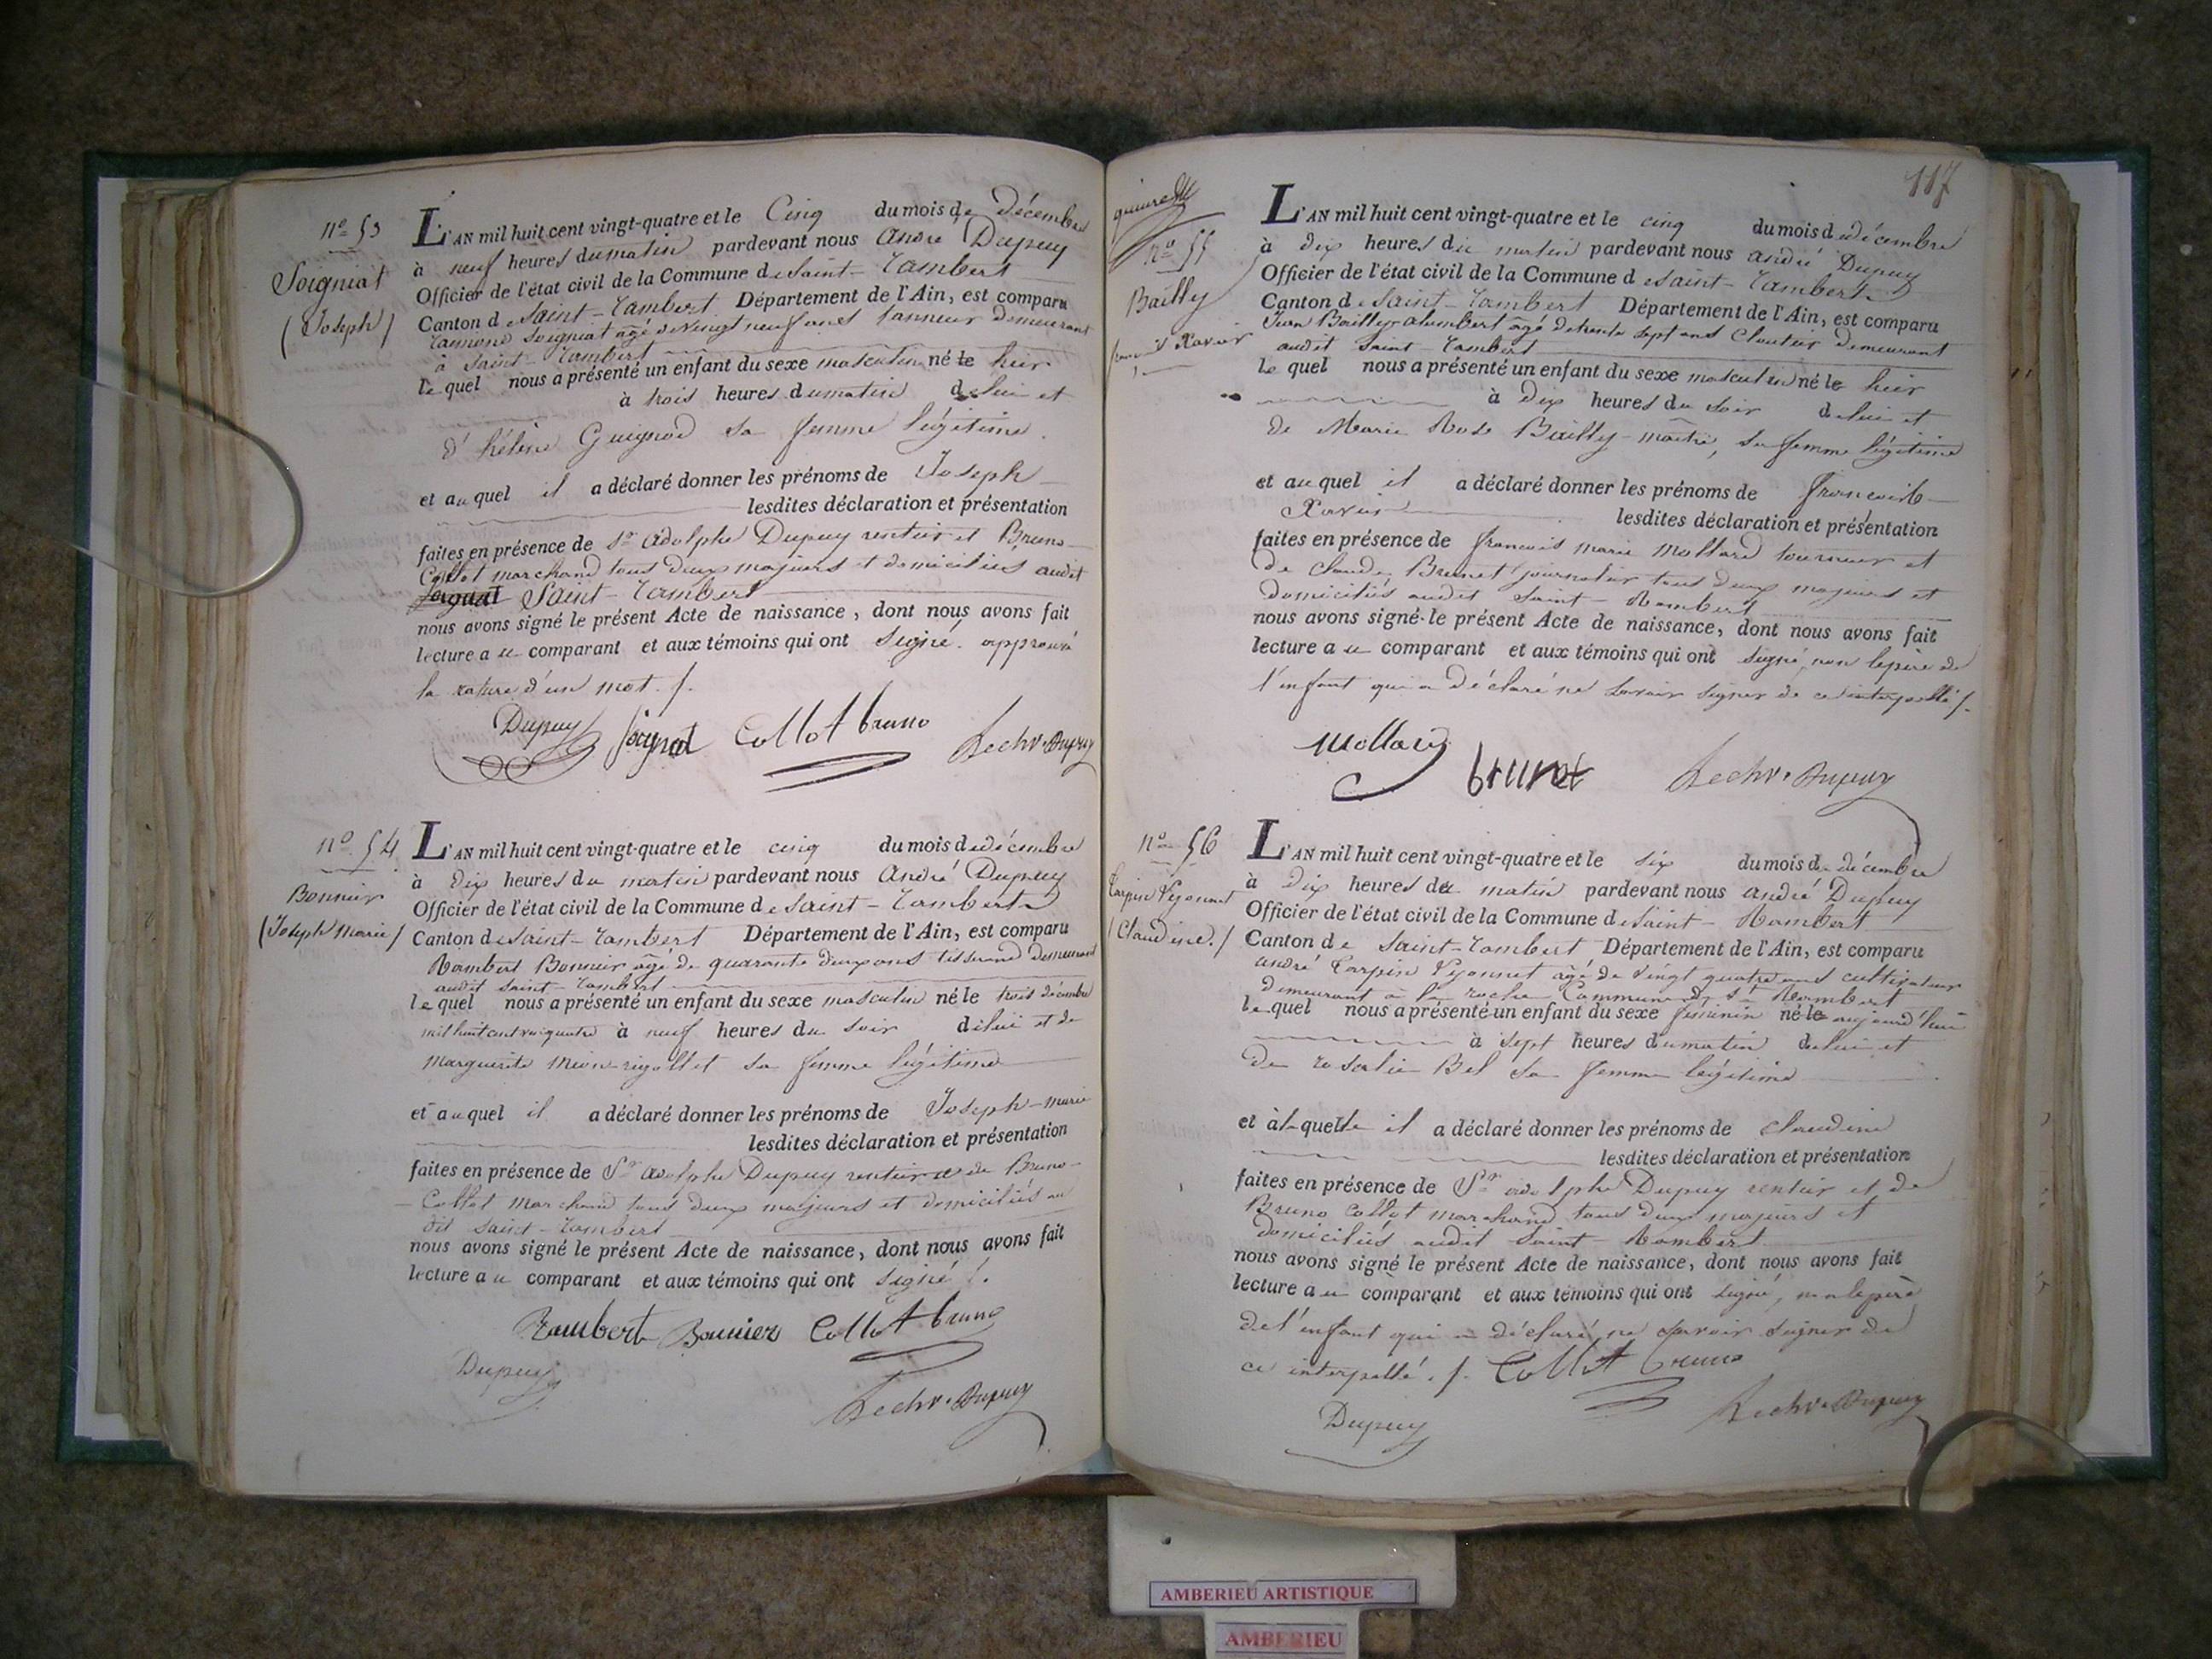 nº 53
Soigniat
(Joseph)
L'AN mil huit cent vingt-quatre et le Cinq du mois de décembre
à neuf heures du matin pardevant nous André Dupuy
Officier de l'état civil de la Commune de Saint-Rambert
Canton de Saint-Rambert Département de l'Ain, est comparu
Raimond Soigniat âgé de vingt neuf ans tanneur demeurant
à Saint-Rambert
lequel nous a présenté un enfant du sexe masculin né le hier
à trois heures du matin de lui et
d'hélène Guignod sa femme légitime.
et auquel il a déclaré donner les prénoms de Joseph
lesdites déclaration et présentation
faites en présence de Sr adolphe Dupuy rentier et Bruno
Collot marchand tous deux majeurs et domiciliés audit
Saint-Rambert
nous avons signé le présent Acte de naissance, dont nous avons fait
lecture au comparant et aux témoins qui ont signé. approuvé
la rature d'un mot./.
Dupuy Soigniat Collot bruno
Dupuy
nº 54
Bonnier
(Joseph Marie)
L'AN mil huit cent vingt-quatre et le cinq du mois de décembre
à dix heures du matin pardevant nous André Dupuy
Officier de l'état civil de la Commune de Saint-Rambert
Canton de Saint-Rambert Département de l'Ain, est comparu
Rambert Bonnier âgé de quarante deux ans tisserand demeurant
audit Saint-Rambert
lequel nous a présenté un enfant du sexe masculin né le trois décembre
mil huit cent vingt quatre à neuf heures du soir de lui et de
marguerite Mion-rigollet sa femme légitime
et auquel il a déclaré donner les prénoms de Joseph-marie
lesdites déclaration et présentation
faites en présence de Sr adolphe Dupuy rentier et de Bruno
Collot marchand tous deux majeurs et domiciliés au
dit Saint-Rambert
nous avons signé le présent Acte de naissance, dont nous avons fait
lecture au comparant et aux témoins qui ont signé /.
Rambert Bonnier Collot bruno
Dupuy
Dupuy
117
nº 55
Bailly
françois Xavier
L'AN mil huit cent vingt-quatre et le cinq du mois de décembre
à dix heures du matin pardevant nous andré Dupuy
Officier de l'état civil de la Commune de Saint-Rambert
Canton de Saint-Rambert Département de l'Ain, est comparu
Jean Bailly-alembert âgé de trente sept ans Cloutier demeurant
audit Saint-Rambert
lequel nous a présenté un enfant du sexe masculin né le hier
à Dix heures du soir de lui et
de Marie Rose Bailly-maitre, sa femme légitime
et auquel il a déclaré donner les prénoms de françois
Xavier lesdites déclaration et présentation
faites en présence de françois marie mollard tourneur et
de Claude Brunet journalier tous deux majeurs et
domiciliés audit Saint-Rambert
nous avons signé le présent Acte de naissance, dont nous avons fait
lecture au comparant et aux témoins qui ont signé, non le père de
l'enfant qui a déclaré ne savoir signer de ce interpellé /.
Mollard
brunet
Dupuy
nº 56
Carpin Vejonnet
(Claudine./
L'AN mil huit cent vingt-quatre et le six du mois de décembre
à Dix heures du matin pardevant nous andré Dupuy
Officier de l'état civil de la Commune de Saint-Rambert
Canton de Saint-Rambert Département de l'Ain, est comparu
andré Carpin Vejonnet âgé de vingt quatre ans cultivateur
demeurant à la roche Commune de St Rambert
lequel nous a présenté un enfant du sexe féminin né le aujourd'hui
à sept heures du matin de lui et
de rosalie Bel sa femme légitime
et à laquelle il a déclaré donner les prénoms de claudine
lesdites déclaration et présentation
faites en présence de Sr adolphe Dupuy rentier et de
Bruno Collot marchand tous deux majeurs et
domiciliés audit Saint-Rambert
nous avons signé le présent Acte de naissance, dont nous avons fait
lecture au comparant et aux témoins qui ont signé, non le père
de l'enfant qui a déclaré ne savoir signer de
ce interpellé. /. Collot bruno
Dupuy
Dupuy
AMBERIEU ARTISTIQUE
AMBERIEU